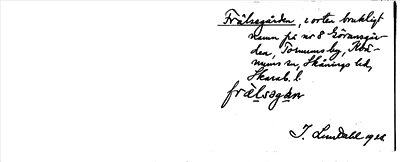 Frälsegården, i orten brukligt
namn på nr 8 Göransgår-
den, Tormums by, Rån-
nums sn, Skånings hd,
Skarab. l.
frälsagàn
I. Lundahl 1926